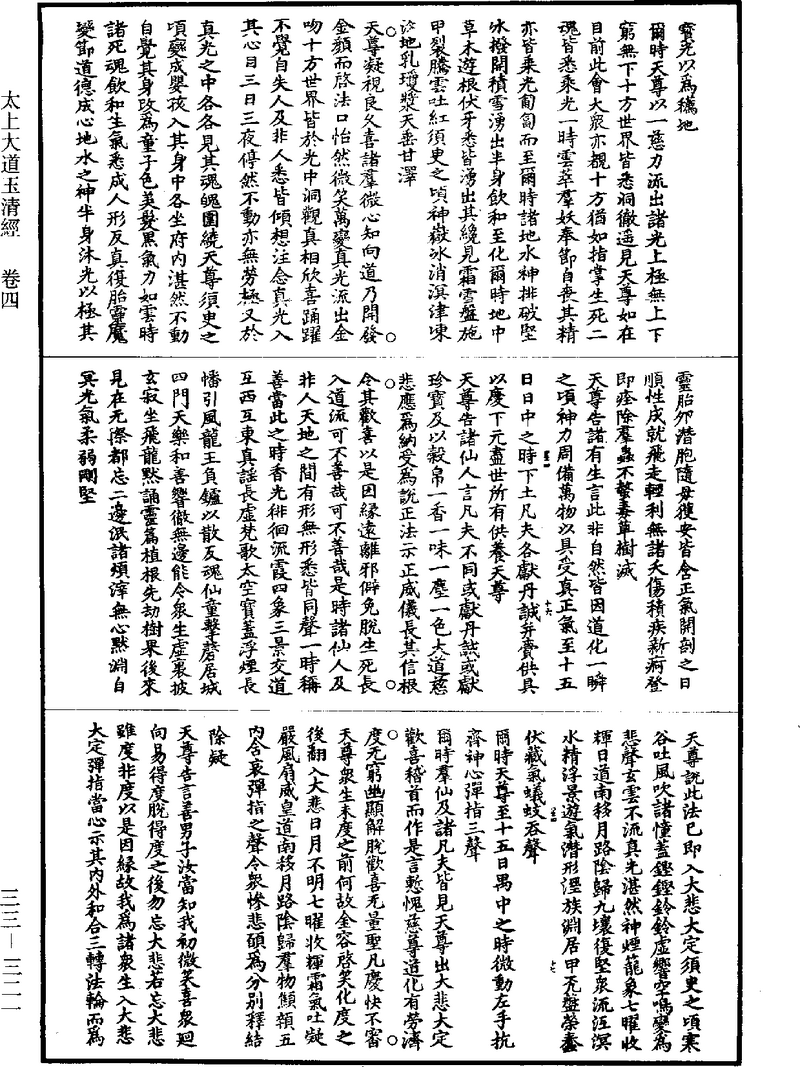 太上大道玉清經　卷四
三三—三二一
寶光以爲穤地
爾時天尊以一慈力流出諸光上極無上下
窮無下十方世界皆悉洞徹遥見天尊如在
目前此會大衆亦覩十方猶如指掌生死二
魂皆悉乘光一時雲萃羣妖奉節自喪其精
亦皆乘光匍匐而至爾時諸地水神排破堅
冰撥開積雪湧出半身飲和至化爾時地中
草木遊根伏牙悉皆湧出其纔見霜雪盤施
甲裂騰雲吐紅須臾之頃神嶽冰消溟津凍
泮地乳瓊漿天垂甘澤
天尊凝視良久喜諸羣微心知向道乃開發
金顔而啓法口怡然微笑萬變真光流出金
吻十方世界皆於光中洞觀真相欣喜踊躍
不覺自失人及非人悉皆傾想注念真光入
其心目三日三夜停然不動亦無勞極又於
真光之中各各見其魂魄圍繞天尊須臾之
頃變成嬰孩入其身中各坐府内湛然不動
自覺其身改爲童子色美髮黑氣力如雲時
諸死魂飲和生氣悉成人形反真復胎靈魔
變節道德成心地水之神半身沐光以極其
靈胎卵潜胞隨母獲安皆含正氣開剖之日
順性成就飛走輕利無諸夭傷積疾新痾登
即痊除羣蟲不螫毒草樹滅
天尊告諸有生言此非自然皆因道化一瞬
之頃神力周備萬物以具受真正氣至十五
日日中之時下土凡夫各獻丹誠弁賫供具
以慶下元盡世所有供養天尊
天尊告諸仙人言凡夫不同或獻丹誠或獻
珍寶及以穀帛一香一味一塵一色大道慈
悲應爲納受爲說正法示正威儀長其信根
令其歡喜以是因緣遠離邪僻免脫生死長
入道流可不善哉可不善哉是時諸仙人及
非人天地之間有形無形悉皆同聲一時稱
善當此之時香光徘徊流霞四象三景交道
互西互東真謡長虛梵歌太空寶蓋浮煙長
幡引風龍王負鑪以散反魂仙童擊磬居城
四門天樂和善響徹無邊能令衆生虛裏披
玄寂坐飛龍默誦靈篇植根先劫樹果後來
見在无際都忘二邊泯諸煩滓無心默淵自
冥光氣柔弱剛堅
天尊說此法已即入大悲大定須臾之頃寒
谷吐風吹諸憧蓋鏗鏗鈴鈴虛響空鳴變爲
悲聲玄雲不流真光湛然神煙蘢象七曜收
輝日道南移月路陰歸九壤復堅衆流沍溟
水精浮景遊氣潜形溼族淵居甲充盤縈蠢
伏藏氣蟻蚊吞聲
爾時天尊至十五日禺中之時微動左手抗
齊神心彈指三聲
爾時羣仙及諸凡夫皆見天尊出大悲大定
歡喜稽首而作是言慙愧慈尊道化有勞濟
度无窮幽顯解脫歡喜无量聖凡慶快不審
天尊衆生未度之前何故金容啓笑化度之
後翻入大悲日月不明七曜收輝霜氣吐凝
嚴風肩威皇道南移月路陰歸羣物顦顇五
内含哀彈指之聲令衆慘悲願爲分别釋結
除疑
天尊告言善男子汝當知我初微笑喜衆廻
向易得度脫得度之後勿忘大悲若忘大悲
雖度非度以是因緣故我爲諸衆生入大悲
大定彈指當心示其内外和合三轉法輪而爲